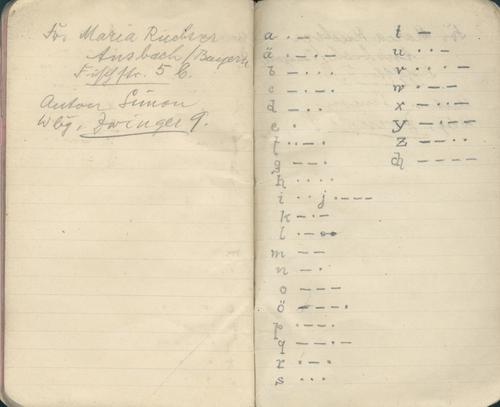 Maria
Ansbach/Bayern
5 b.
Anton Simon
Wbg, Zwinger 9.
a · –
ä · – · –
b – · · ·
c – · – ·
d – · ·
e ·
f · · – ·
g – – ·
h · · · ·
i · · j · – – –
k – · –
l · – · ·
m – –
n – ·
o – – –
ö – – – ·
p · – – ·
q – – · –
r · – ·
s · · ·
t –
u · · –
v · · · –
w · – –
x – · · –
y – · – –
z – – · ·
ch – – – –